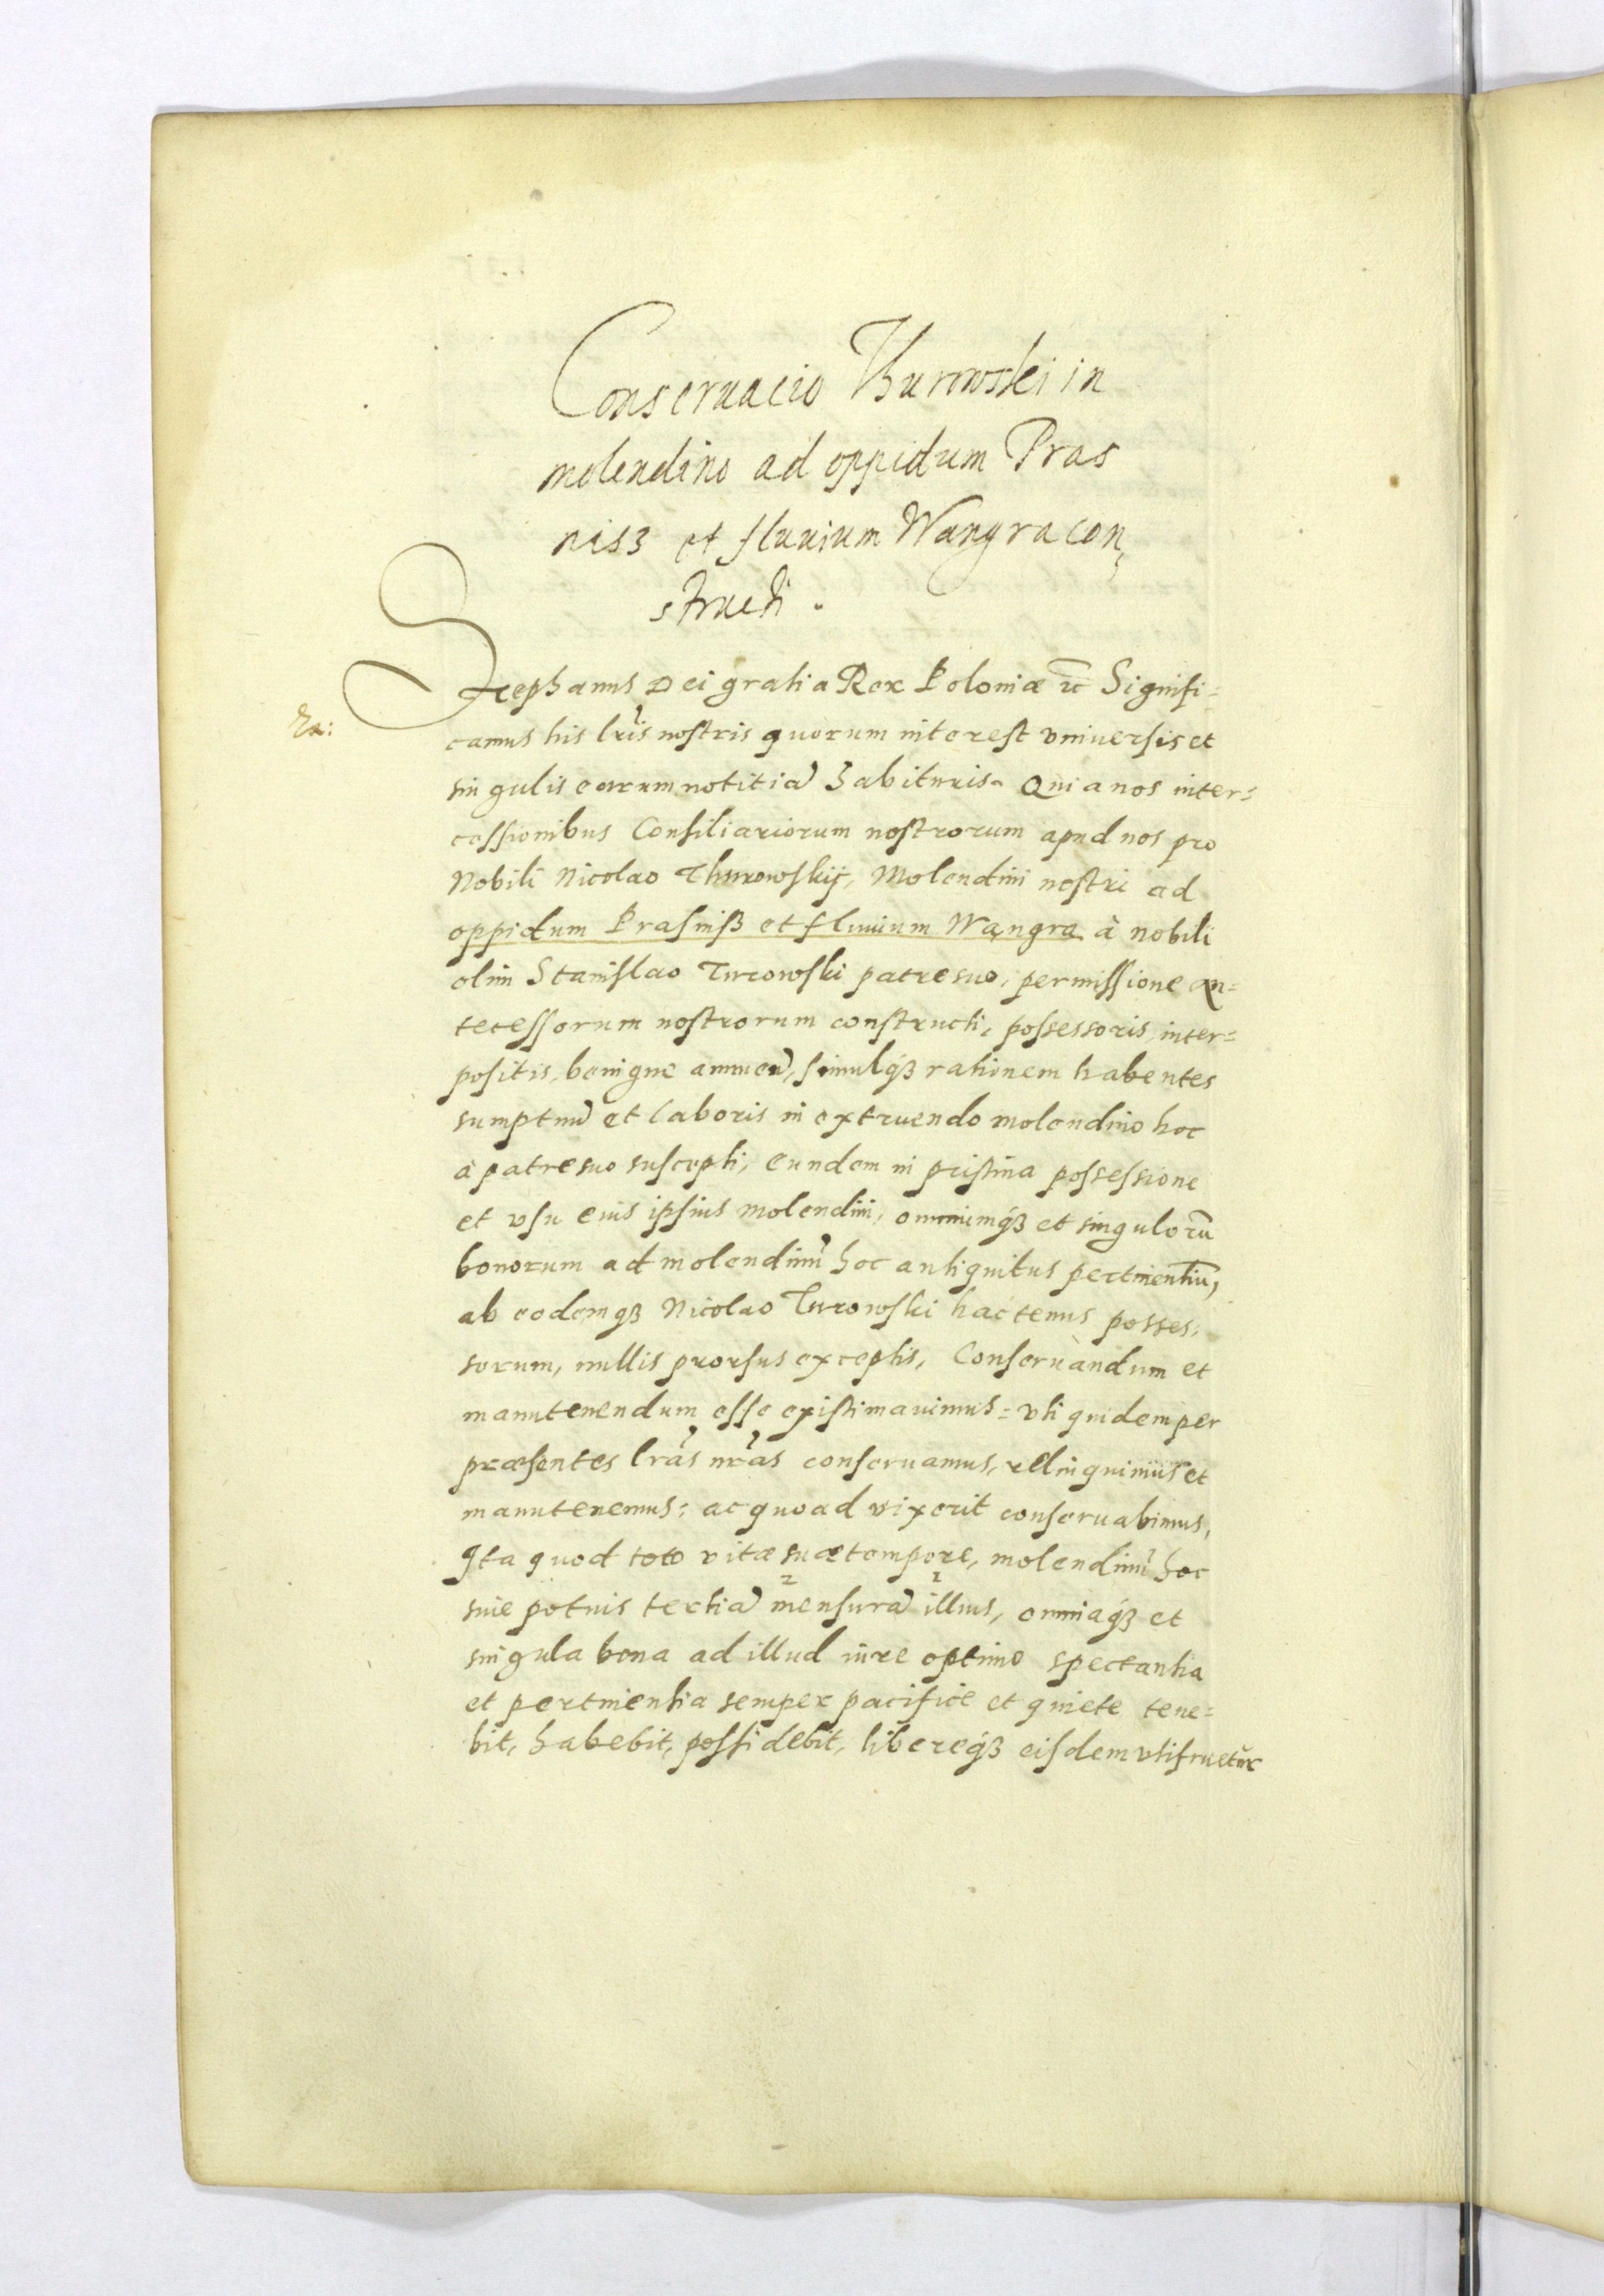 Conseruacio Thurowski in
molendino ad oppidum Pras
nisz et fluuium Wangra con,
structi.
Stephanus Dei gratia Rex Poloniæ ꝛc Signifi=
camus his lr̃is nostris quorum interest vniuersis et
singulis earum notitiã habituris. Quia nos inter=
cessionibus Consiliariorum nostrorum apud nos pro
Nobili Nicolao Thurowskij, Molendini nostri ad
oppidum Prasnisz et fluuium Wąngra à nobili
olim Stanislao Turowski patre suo, permissione an=
tecessorum nostrorum constructi, possessoris, inter=
positis, benigne annuen̄, simulq́ꝫ rationem habentes
sumptuũ et laboris in extruendo molendino hoc
à patre suo suscepti, eundem in pristina possessione
et vsu eius ipsius molendini, omniumq́ꝫ et singulorũ
bonorum ad molendinũ hoc antiquitus pertinentiũ,
ab eodemqꝫ Nicolao Turowski hactenus posses,
sorum, nullis prorsus exceptis, Conseruandum et
manutenendum esse existimauimus= vti quidem per
præsentes lr̃as nr̃as conseruamus, relinquimus et
manutenemus: ac quoad vixerit conseruabimus,
Ita quod toto vitæ suæ tempore, molendinũ hoc
siue potius tertiã mensurã illius, omniaq́ꝫ et
2 1
singula bona ad illud iure optimo spectantia
et pertinentia semper pacifice et quiete tene=
bit, habebit, possidebit, libereq́ꝫ eisdem vtifruetur